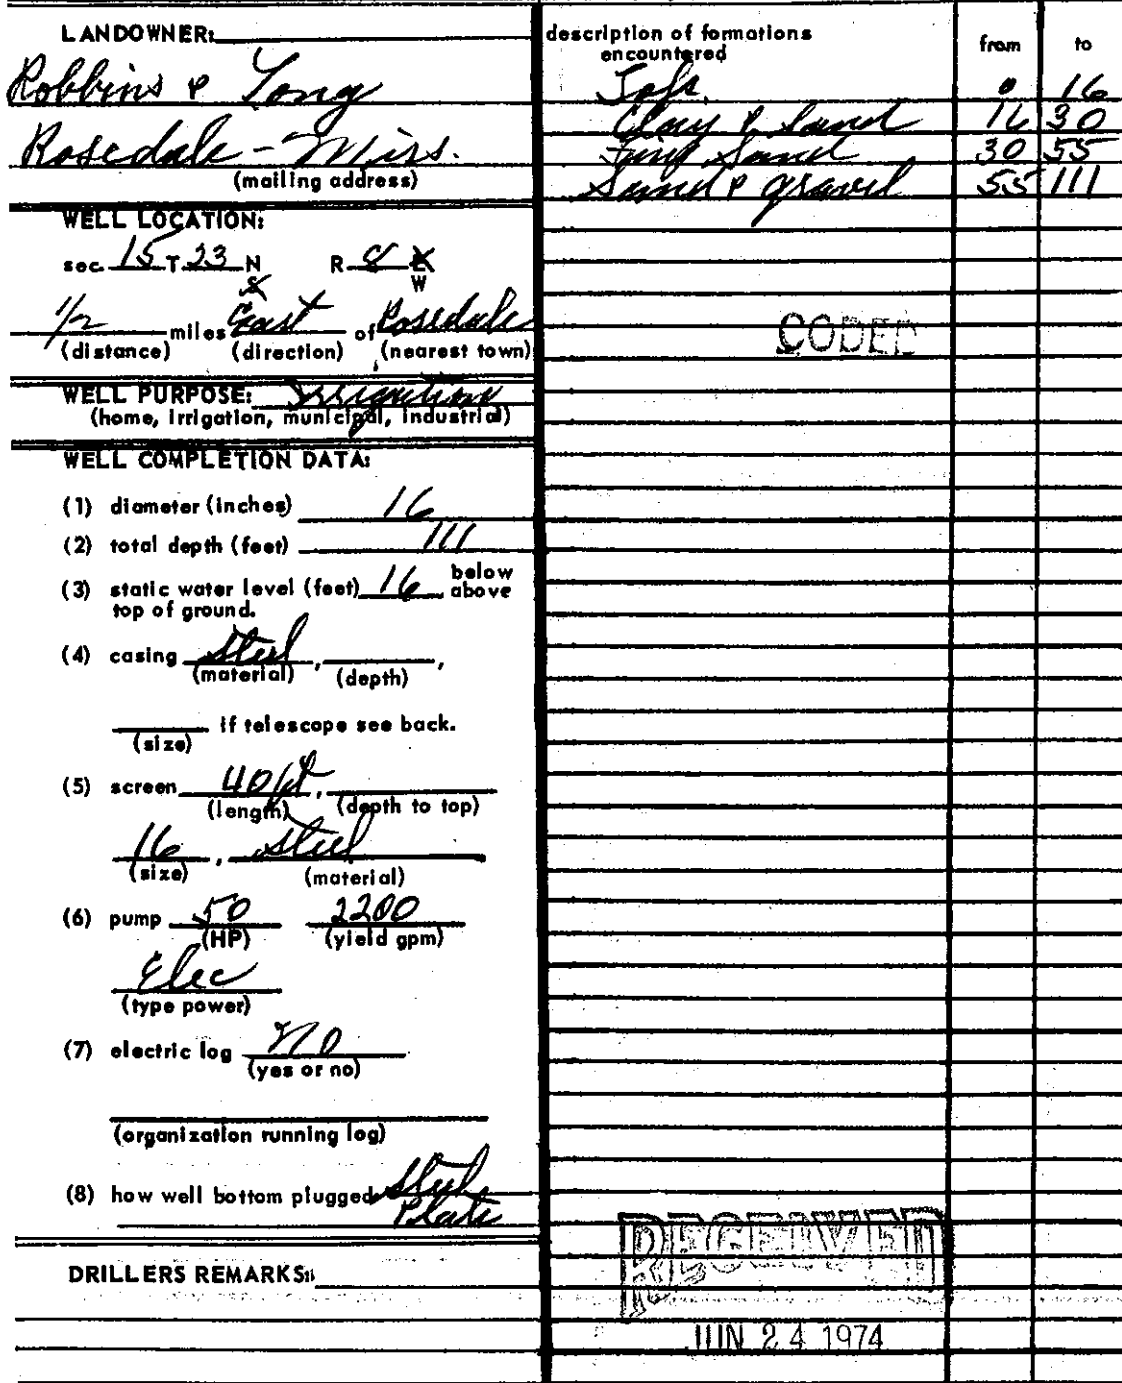 LANDOWNER:
Robbins & Long
Rosedale - Miss.
(mailing address)
WELL LOCATION:
sec. 15 T. 23 N R 8 E
S W
1/2 miles East of Rosedale
(distance) (direction) (nearest town)
WELL PURPOSE: Irrigation
(home, irrigation, municipal, industrial)
WELL COMPLETION DATA:
(1) diameter (inches) 16
(2) total depth (feet) 111
(3) static water level (feet) 16 below
above
top of ground.
(4) casing Steel, ,
(material) (depth)
if telescope see back.
(size)
(5) screen 40 ft,
(length) (depth to top)
16, steel
(size) (material)
(6) pump 50 2200
(HP) (yield gpm)
Elec
(type power)
(7) electric log No
(yes or no)
(organization running log)
(8) how well bottom plugged Steel
Plate
DRILLERS REMARKS:
description of formations
encountered
from to
0 16
Clay & Sand 16 30
Fine Sand 30 55
Sand & gravel 55 111
CODED
RECEIVED
JUN 24 1974